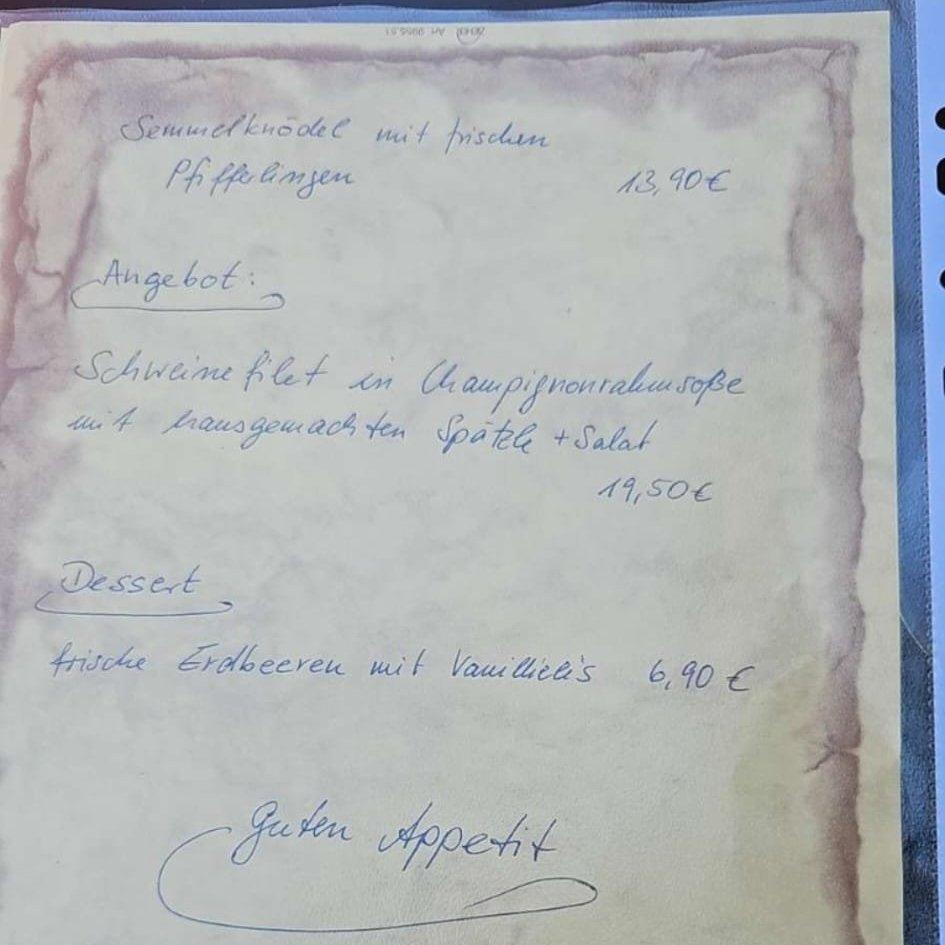 Semmelknödel mit frischen
Pfifferlingen 13,90€
Angebot:
Schweinefilet in Champignonrahmsoße
mit hausgemachten Spätzle + Salat
19,50€
Dessert
frische Erdbeeren mit Vanillieeis 6,90 €
Guten Appetit